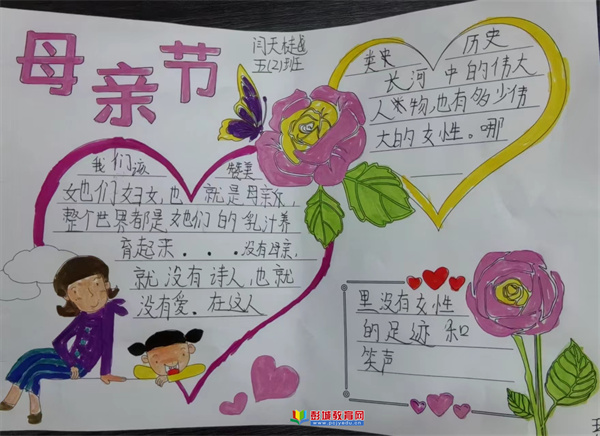 母亲节
闫天樾
五(2)班
我们该 赞美
她们妇女,也就是母亲,
整个世界都是她们的乳汁养
育起来...没有母亲,
就没有诗人,也就
没有爱.在这人
类史 历史
长河中的伟大
人物,也有多少伟
大的女性。哪
里没有女性
的足迹和
笑声
彭城教育网
www.pcjyedu.cn